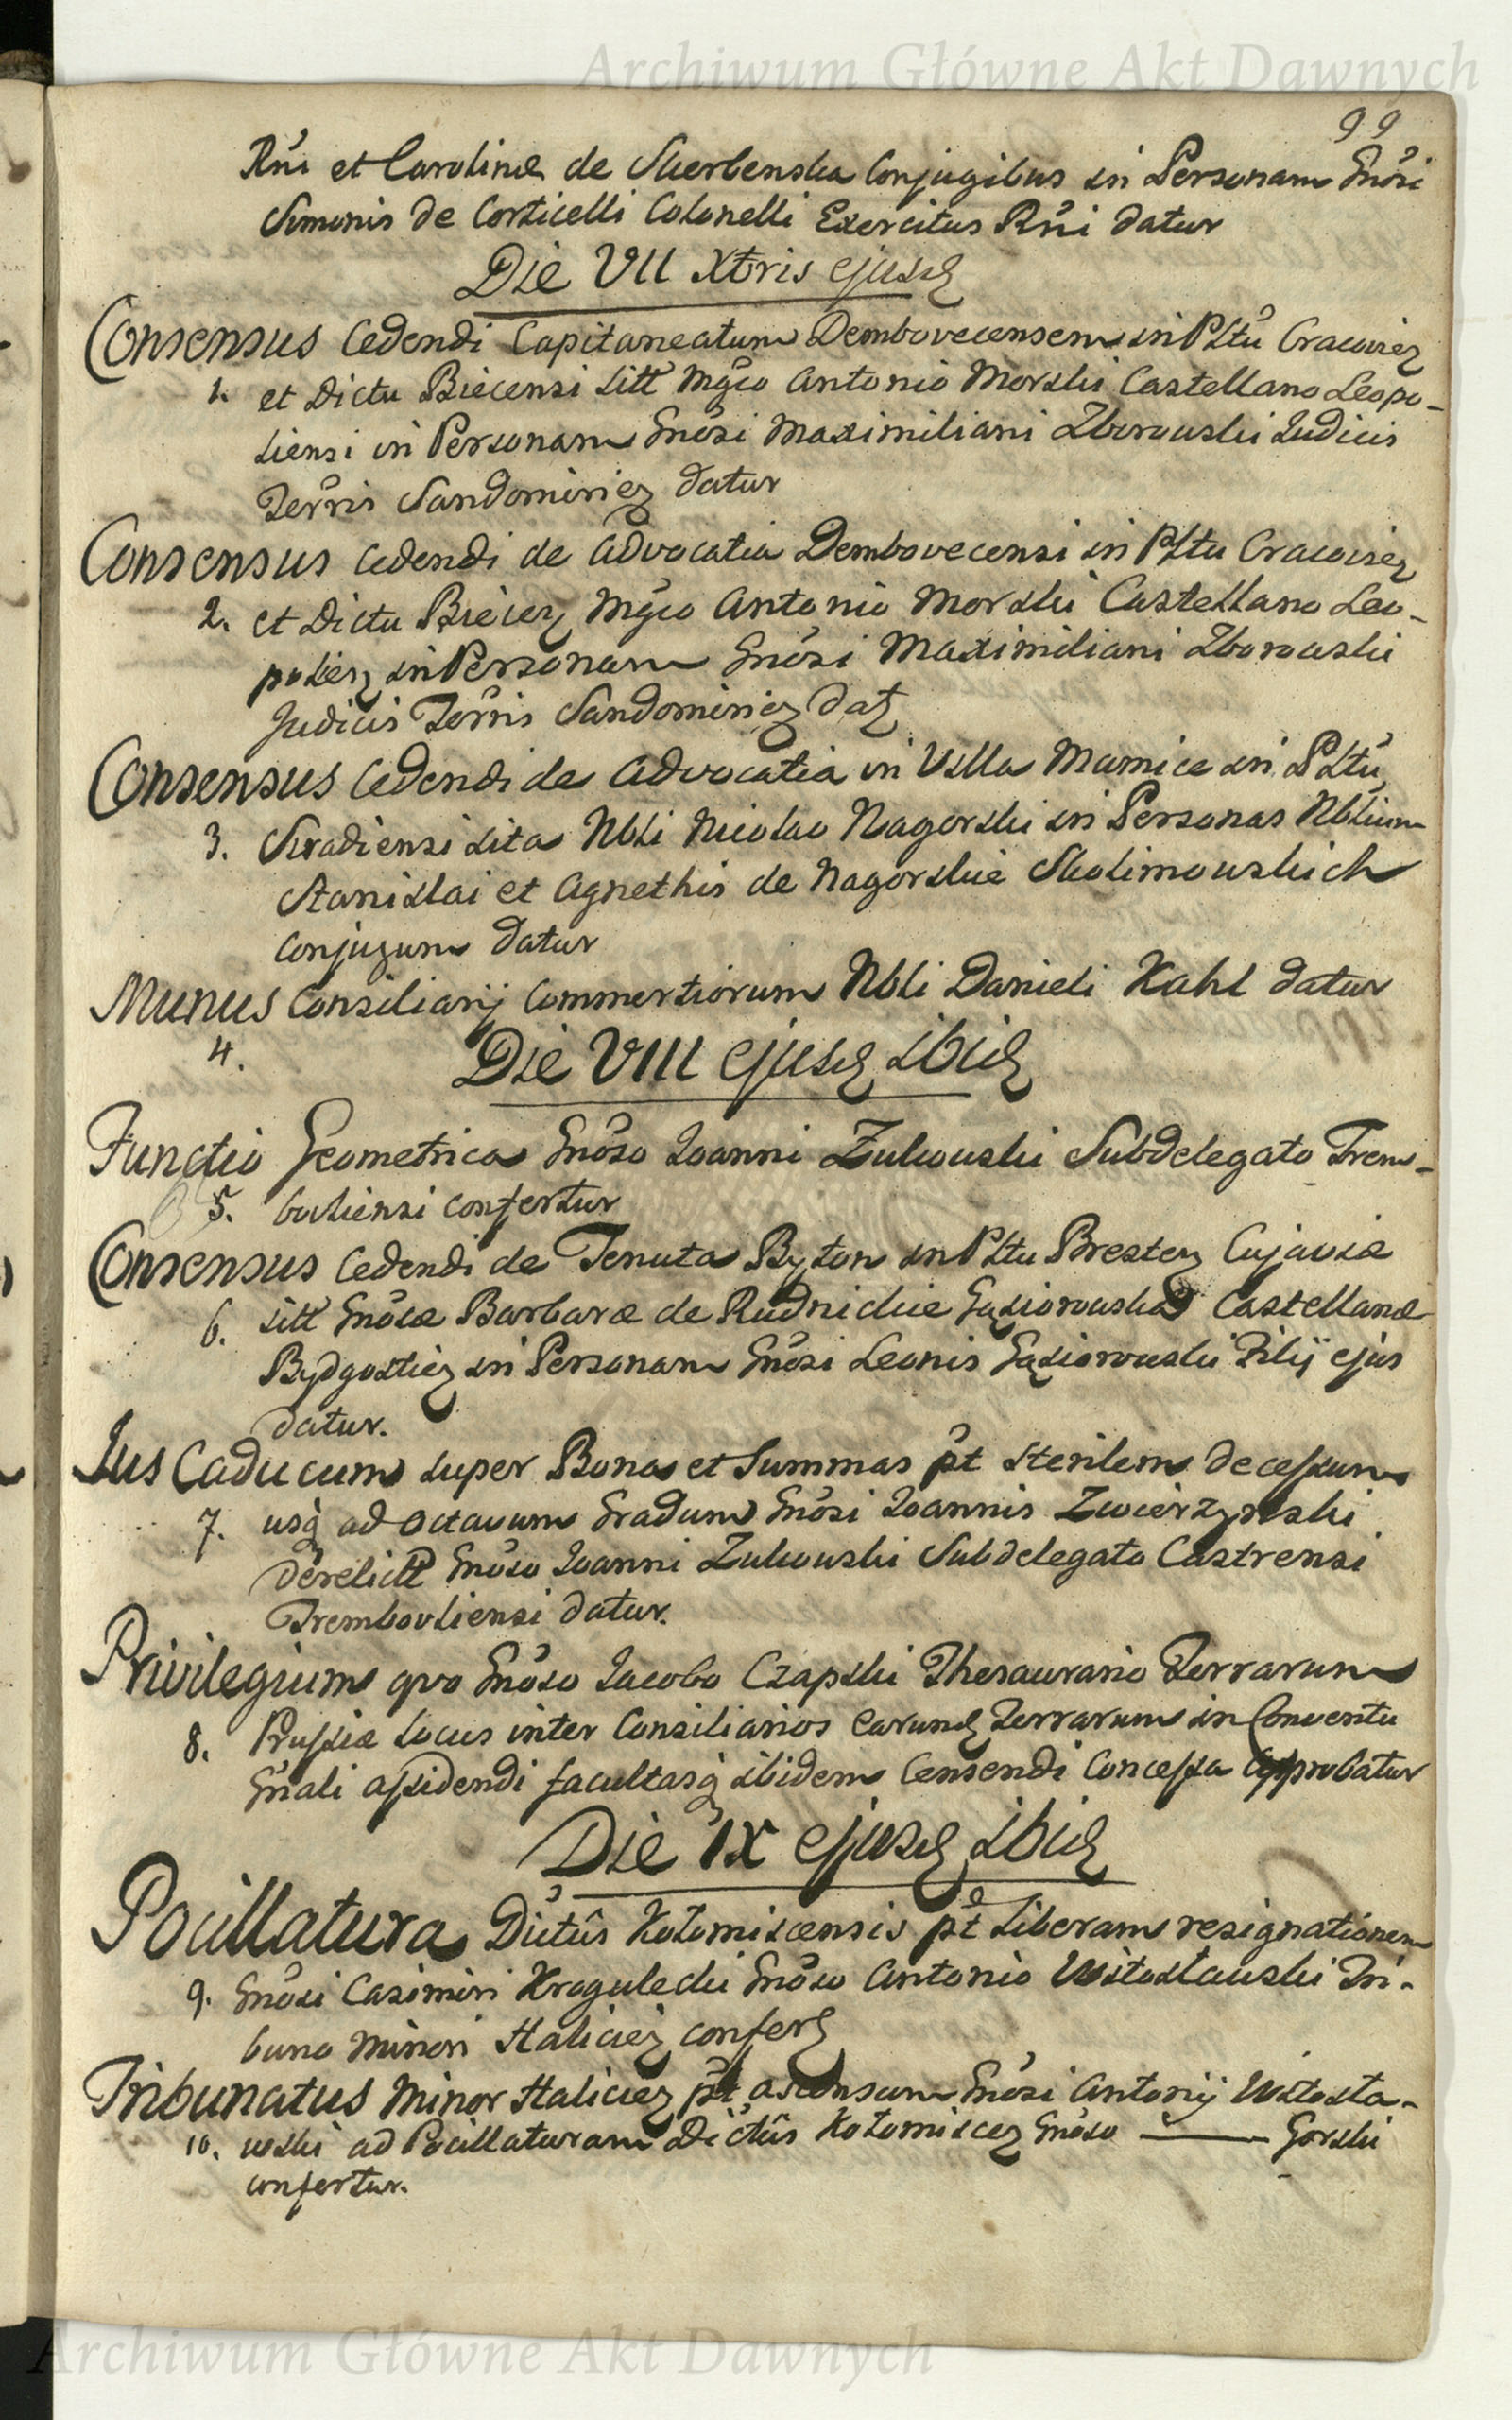 Archiwum Główne Akt Dawnych
99
Rni et Carolinæ de Skerbenska Conjugibus in Personam Gnōsi
Simonis de Corticelli Colonelli Exercitus Rni datur
Die VII Xbris ejusd
Consensus Cedendi Capitaneatum Dembovecensem in Pltu Cracovien
1. et Dictu Biecensi sitt Mgco Antonio Morski Castellano Leopo-
liensi in Personam Gnōsi Maximiliani Zborowski Judicis
Terris Sandomirien datur
Consensus Cedendi de Advocatia Dembovecensi in Pltu Cracovien
2. et Dictu Biecen Mgco Antonio Morski Castellano Leo-
polien in Personam Gnōsi Maximiliani Zborowski
Judicis Terris Sandomirien dat
Consensus Cedendi de Advocatia in Villa Mamice in Pltu
3. Siradiensi sita Nbli Nicolao Nagorski in Personas Nblium
Stanislai et Agnethis de Nagorskie Skolimowskich
Conjugum datur
Munus Consiliarij Commertiorum Nbli Danieli Kahl datur
4.
Die VIII ejusd ibid
Functio Geometrica Gnōso Joanni Zukowski Subdelegato Trem-
5. bovliensi confertur
Consensus Cedendi de Tenuta Byton in Pltu Bresten Cujaviæ
6. sitt Gnōsæ Barbaræ de Rudnickie Gąsiorowska Castellanæ
Bydgostien in Personam Gnōsi Leonis Gąsiorowski Filij ejus
datur.
Jus Caducum super Bona et Summas pt sterilem decessum
7. usq ad octavum Gradum Gnōsi Joannis Zwierzynski
derelictt Gnōso Joanni Zukowski Subdelegato Castrensi
Trembovliensi datur.
Privilegium quo Gnōso Jacobo Czapski Thesaurario Terrarum
8. Prussiæ Locus inter Consiliarios earund Terrarum in Conventu
Gnali assidendi facultasq ibidem Censendi Concessa Approbatur
Die IX ejusd ibid
Pocillatura Dictûs Kolomiscensis pt Liberam resignationem
9. Gnōsi Casimiri Kraguledei Gnōso Antonio Witosławski Tri-
buno Minori Halicien confert
Tribunatus Minor Halicien pt ascensum Gnōsi Antonij Witosła-
10. wski ad Pocillaturam Dictûs Kolomiscen Gnōso ——— Gorski
confertur.
Archiwum Główne Akt Dawnych